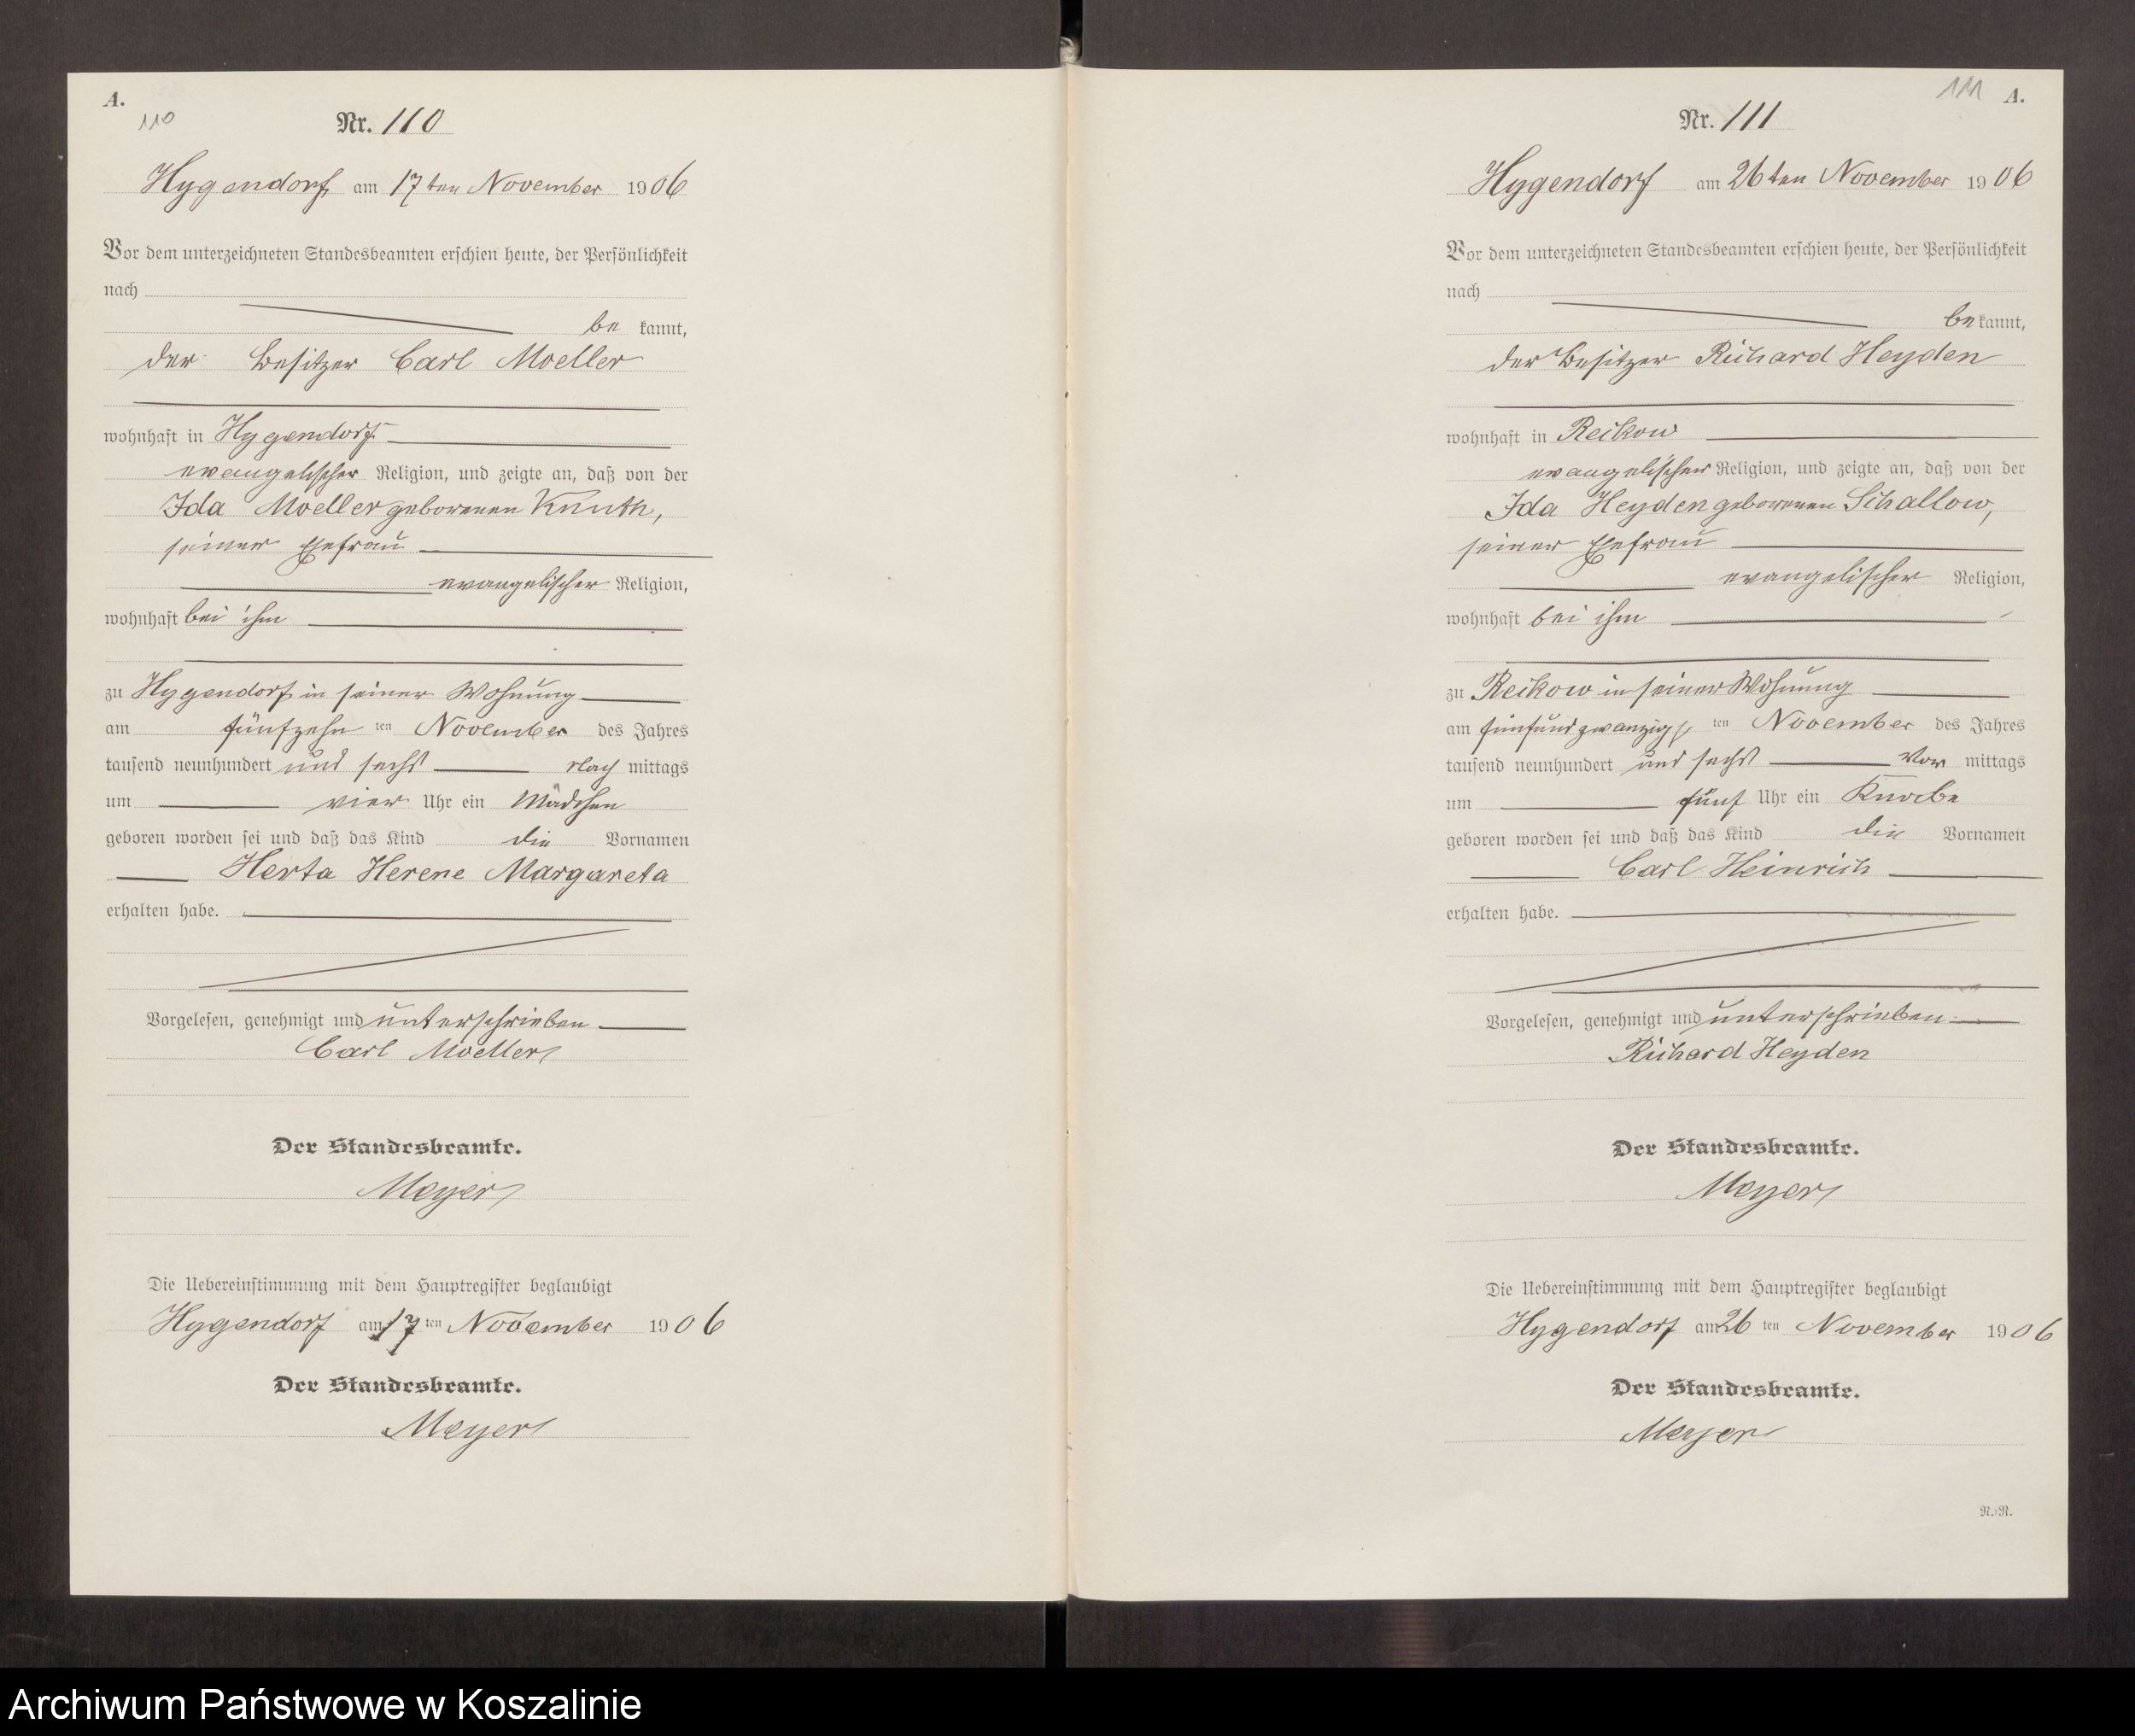 A.
110
Nr. 110
Hygendorf am 17ten November 1906
Vor dem unterzeichneten Standesbeamten erschien heute, der Persönlichkeit
nach
be kannt,
der Besitzer Carl Moeller
wohnhaft in Hygendorf
evangelischer Religion, und zeigte an, daß von der
Ida Moeller geborenen Knuth,
seiner Ehefrau
evangelischer Religion,
wohnhaft bei ihm
zu Hygendorf in seiner Wohnung
am fünfzehn ten November des Jahres
tausend neunhundert und sechs Nach mittags
um vier Uhr ein Mädchen
geboren worden sei und daß das Kind die Vornamen
Herta Herene Margareta
erhalten habe.
Vorgelesen, genehmigt und unterschrieben
Carl Moeller
Der Standesbeamte.
Meyer
Die Uebereinstimmung mit dem Hauptregister beglaubigt
Hygendorf am 17 ten November 1906
Der Standesbeamte.
Meyer
111 A.
Nr. 111
Hygendorf am 26ten November 1906
Vor dem unterzeichneten Standesbeamten erschien heute, der Persönlichkeit
nach
be kannt,
der Besitzer Richard Heyden
wohnhaft in Reikow
evangelischer Religion, und zeigte an, daß von der
Ida Heyden geborenen Schallow,
seiner Ehefrau
evangelischer Religion,
wohnhaft bei ihm
zu Reikow in seiner Wohnung
am fünfundzwanzigs ten November des Jahres
tausend neunhundert und sechs Vor mittags
um fünf Uhr ein Knabe
geboren worden sei und daß das Kind die Vornamen
Carl Heinrich
erhalten habe.
Vorgelesen, genehmigt und unterschrieben
Richard Heyden
Der Standesbeamte.
Meyer
Die Uebereinstimmung mit dem Hauptregister beglaubigt
Hygendorf am 26 ten November 1906
Der Standesbeamte.
Meyer
R.=R.
Archiwum Państwowe w Koszalinie